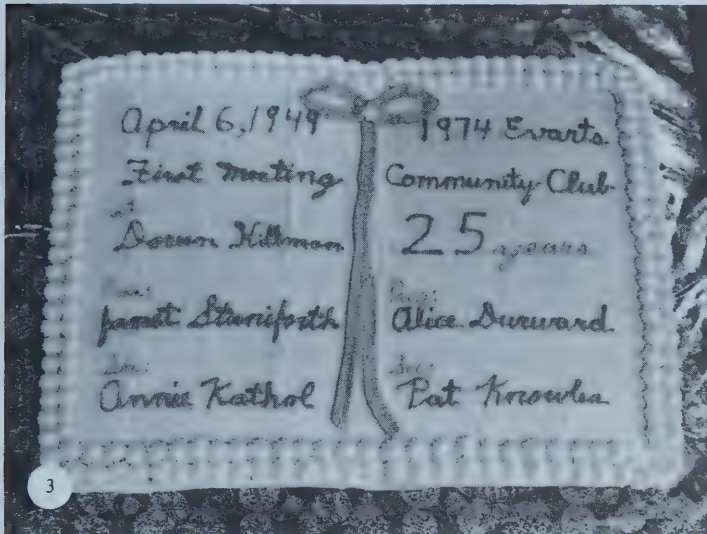 April 6, 1949
First Meeting
at
Doreen Hillman
Pres:
Janet Staniforth
Sec:
Annie Kathol
1974 Evarts
Community Club
25 years
Pres:
Alice Durward
Sec:
Pat Knowles
3